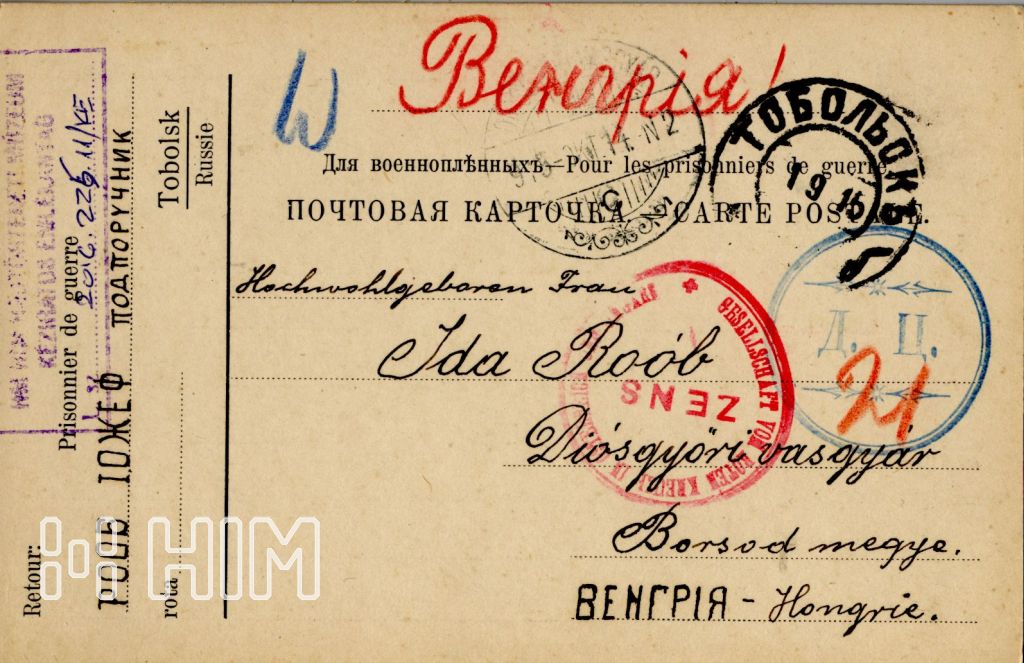 Венгрія!
W
Для военноплѣнныхъ—Pour les prisonniers de guerre.
ПОЧТОВАЯ КАРТОЧКА. — CARTE POSTALE.
ТОБОЛЬСКЪ
1 9 15
б
Hochwohlgebaren Frau
Ida Roób
Diósgyőri vasgyár
Borsod megye.
ВЕНГРІЯ - Hongrie.
GESELLSCHAFT VOM ROTEN KREUZE
ZENS
Д. Ц.
21
Tobolsk
Russie
Retour:
Prisonnier de guerre
РООБ ІОЖЕФ ПОДПОРУЧНИК
rota
HIM